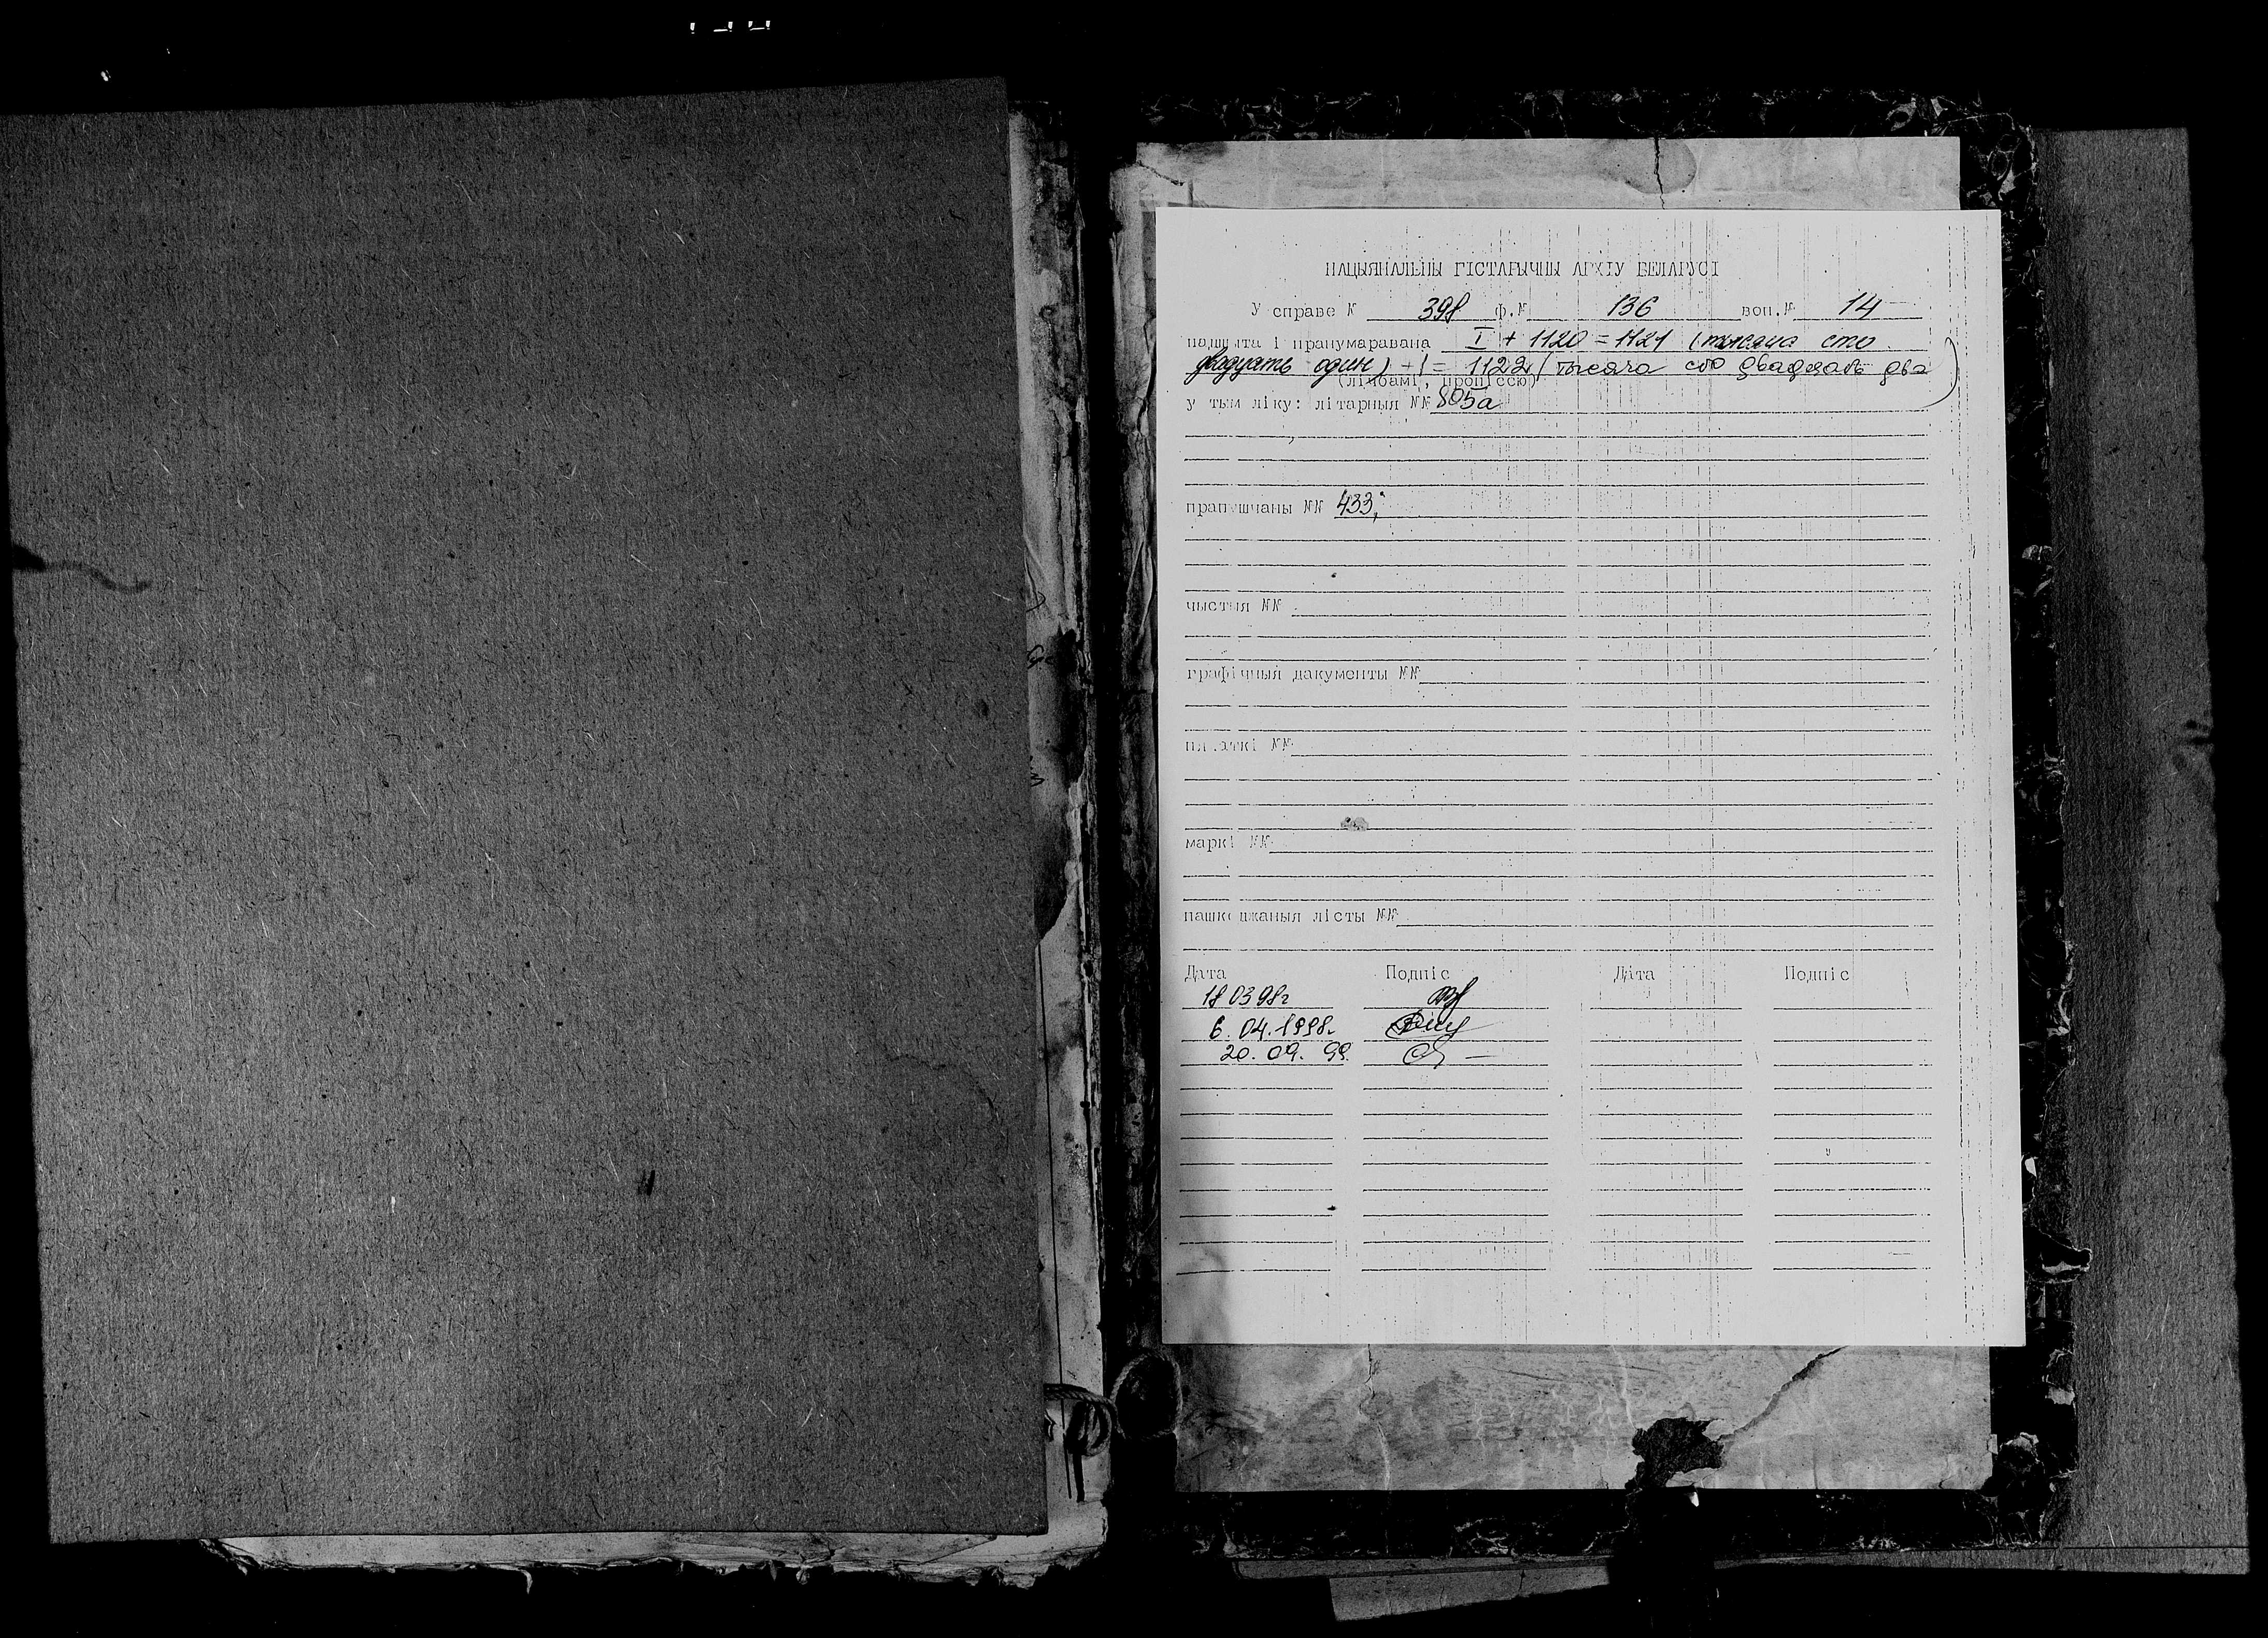 НАЦЫЯНАЛЬНЫ ГІСТАРЫЧНЫ АРХІУ БЕЛАРУСІ
У справе № 398 ф.№ 136 воп.№ 14
падшыта і пранумаравана I + 1120 = 1121 (тысяча сто
двадцать один) + 1 = 1122 (тысяча сто двадцать два)
(лічбамі, пропіссю)
у тым ліку: літарныя №№ 805а
прапушчаны №№ 433;
чыстыя №№
графічныя дакументы №№
пл аткі №№
маркі №№
пашкоджаныя лісты №№
Дата Подпіс Дата Подпіс
18 03 98г
6. 04. 1998г.
20. 09. 99.